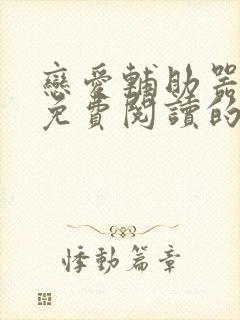 戀愛輔助器
免費閱讀的
悸動篇章